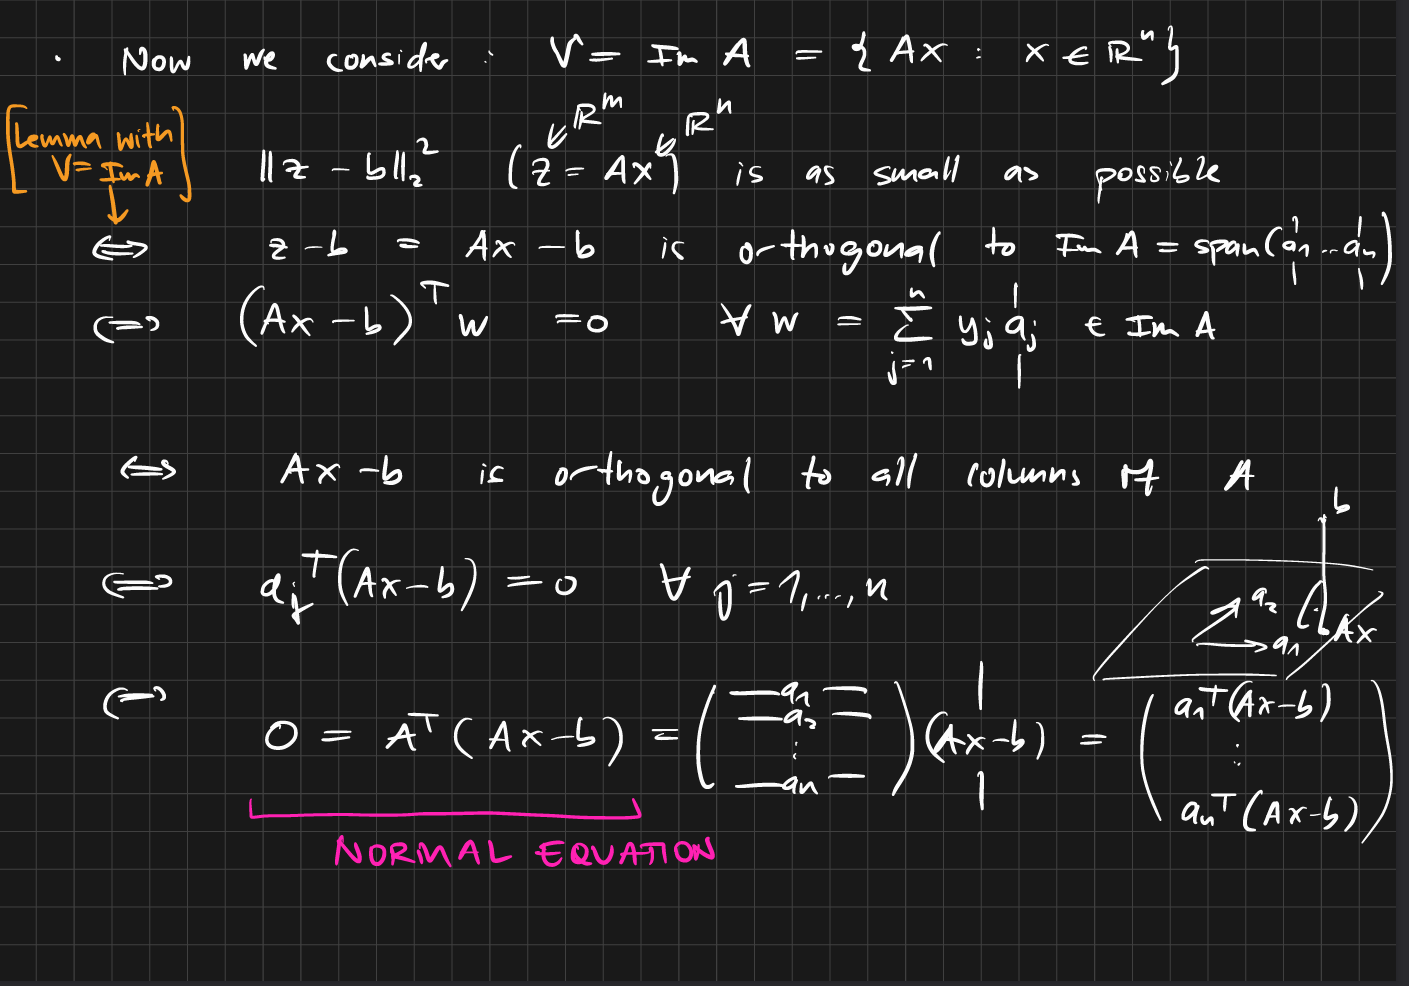 · Now we consider : V = Im A = { Ax : x ∈ ℝⁿ }
[Lemma with V = Im A]
↓
‖z − b‖₂² (z = Ax) is as small as possible
ℝᵐ ℝⁿ
⟺ z − b = Ax − b is orthogonal to Im A = span(a₁ ... aₙ)
⟺ (Ax − b)ᵀ w = 0 ∀ w = ∑ⱼ₌₁ⁿ yⱼ aⱼ ∈ Im A
⟺ Ax − b is orthogonal to all columns of A
⟺ aⱼᵀ(Ax − b) = 0 ∀ j = 1, ..., n
b
a₂
a₁
Ax
⟺ 0 = Aᵀ(Ax − b) = ( — a₁ — — a₂ — ⋮ — aₙ — ) (Ax − b) = ( a₁ᵀ(Ax − b) ⋮ aₙᵀ(Ax − b) )
NORMAL EQUATION